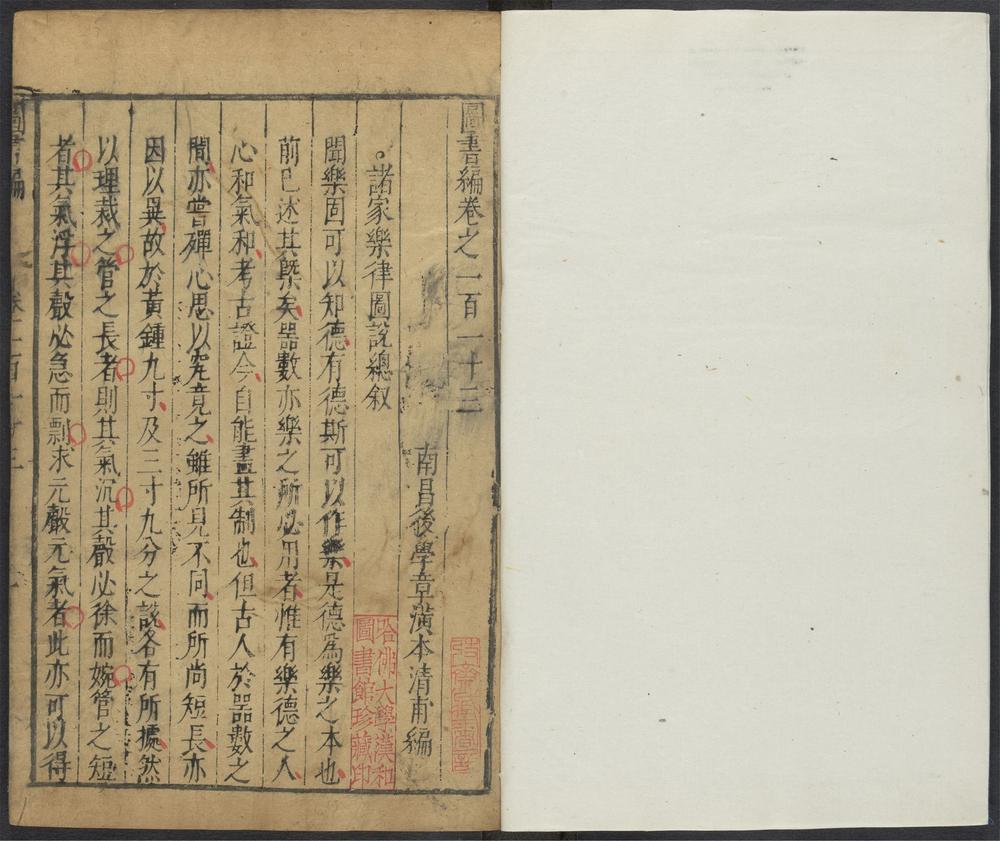 圖書編卷之一百一十三
南昌後學章潢本清甫編
諸家樂律圖說總叙
聞樂固可以知德有德斯可以作樂是德爲樂之本也
前已述其槩矣器數亦樂之所必用者惟有樂德之人
心和氣和考古證今自能盡其制也但古人於器數之
間亦嘗殫心思以究竟之雖所見不同而所尚短長亦
因以異故於黃鍾九寸及三寸九分之說各有所據然
以理裁之管之長者則其氣沉其聲必徐而婉管之短
者其氣浮其聲必急而剽求元聲元氣者此亦可以得
圖書編
卷一百一十三
哈佛大學漢和
圖書館珍藏印